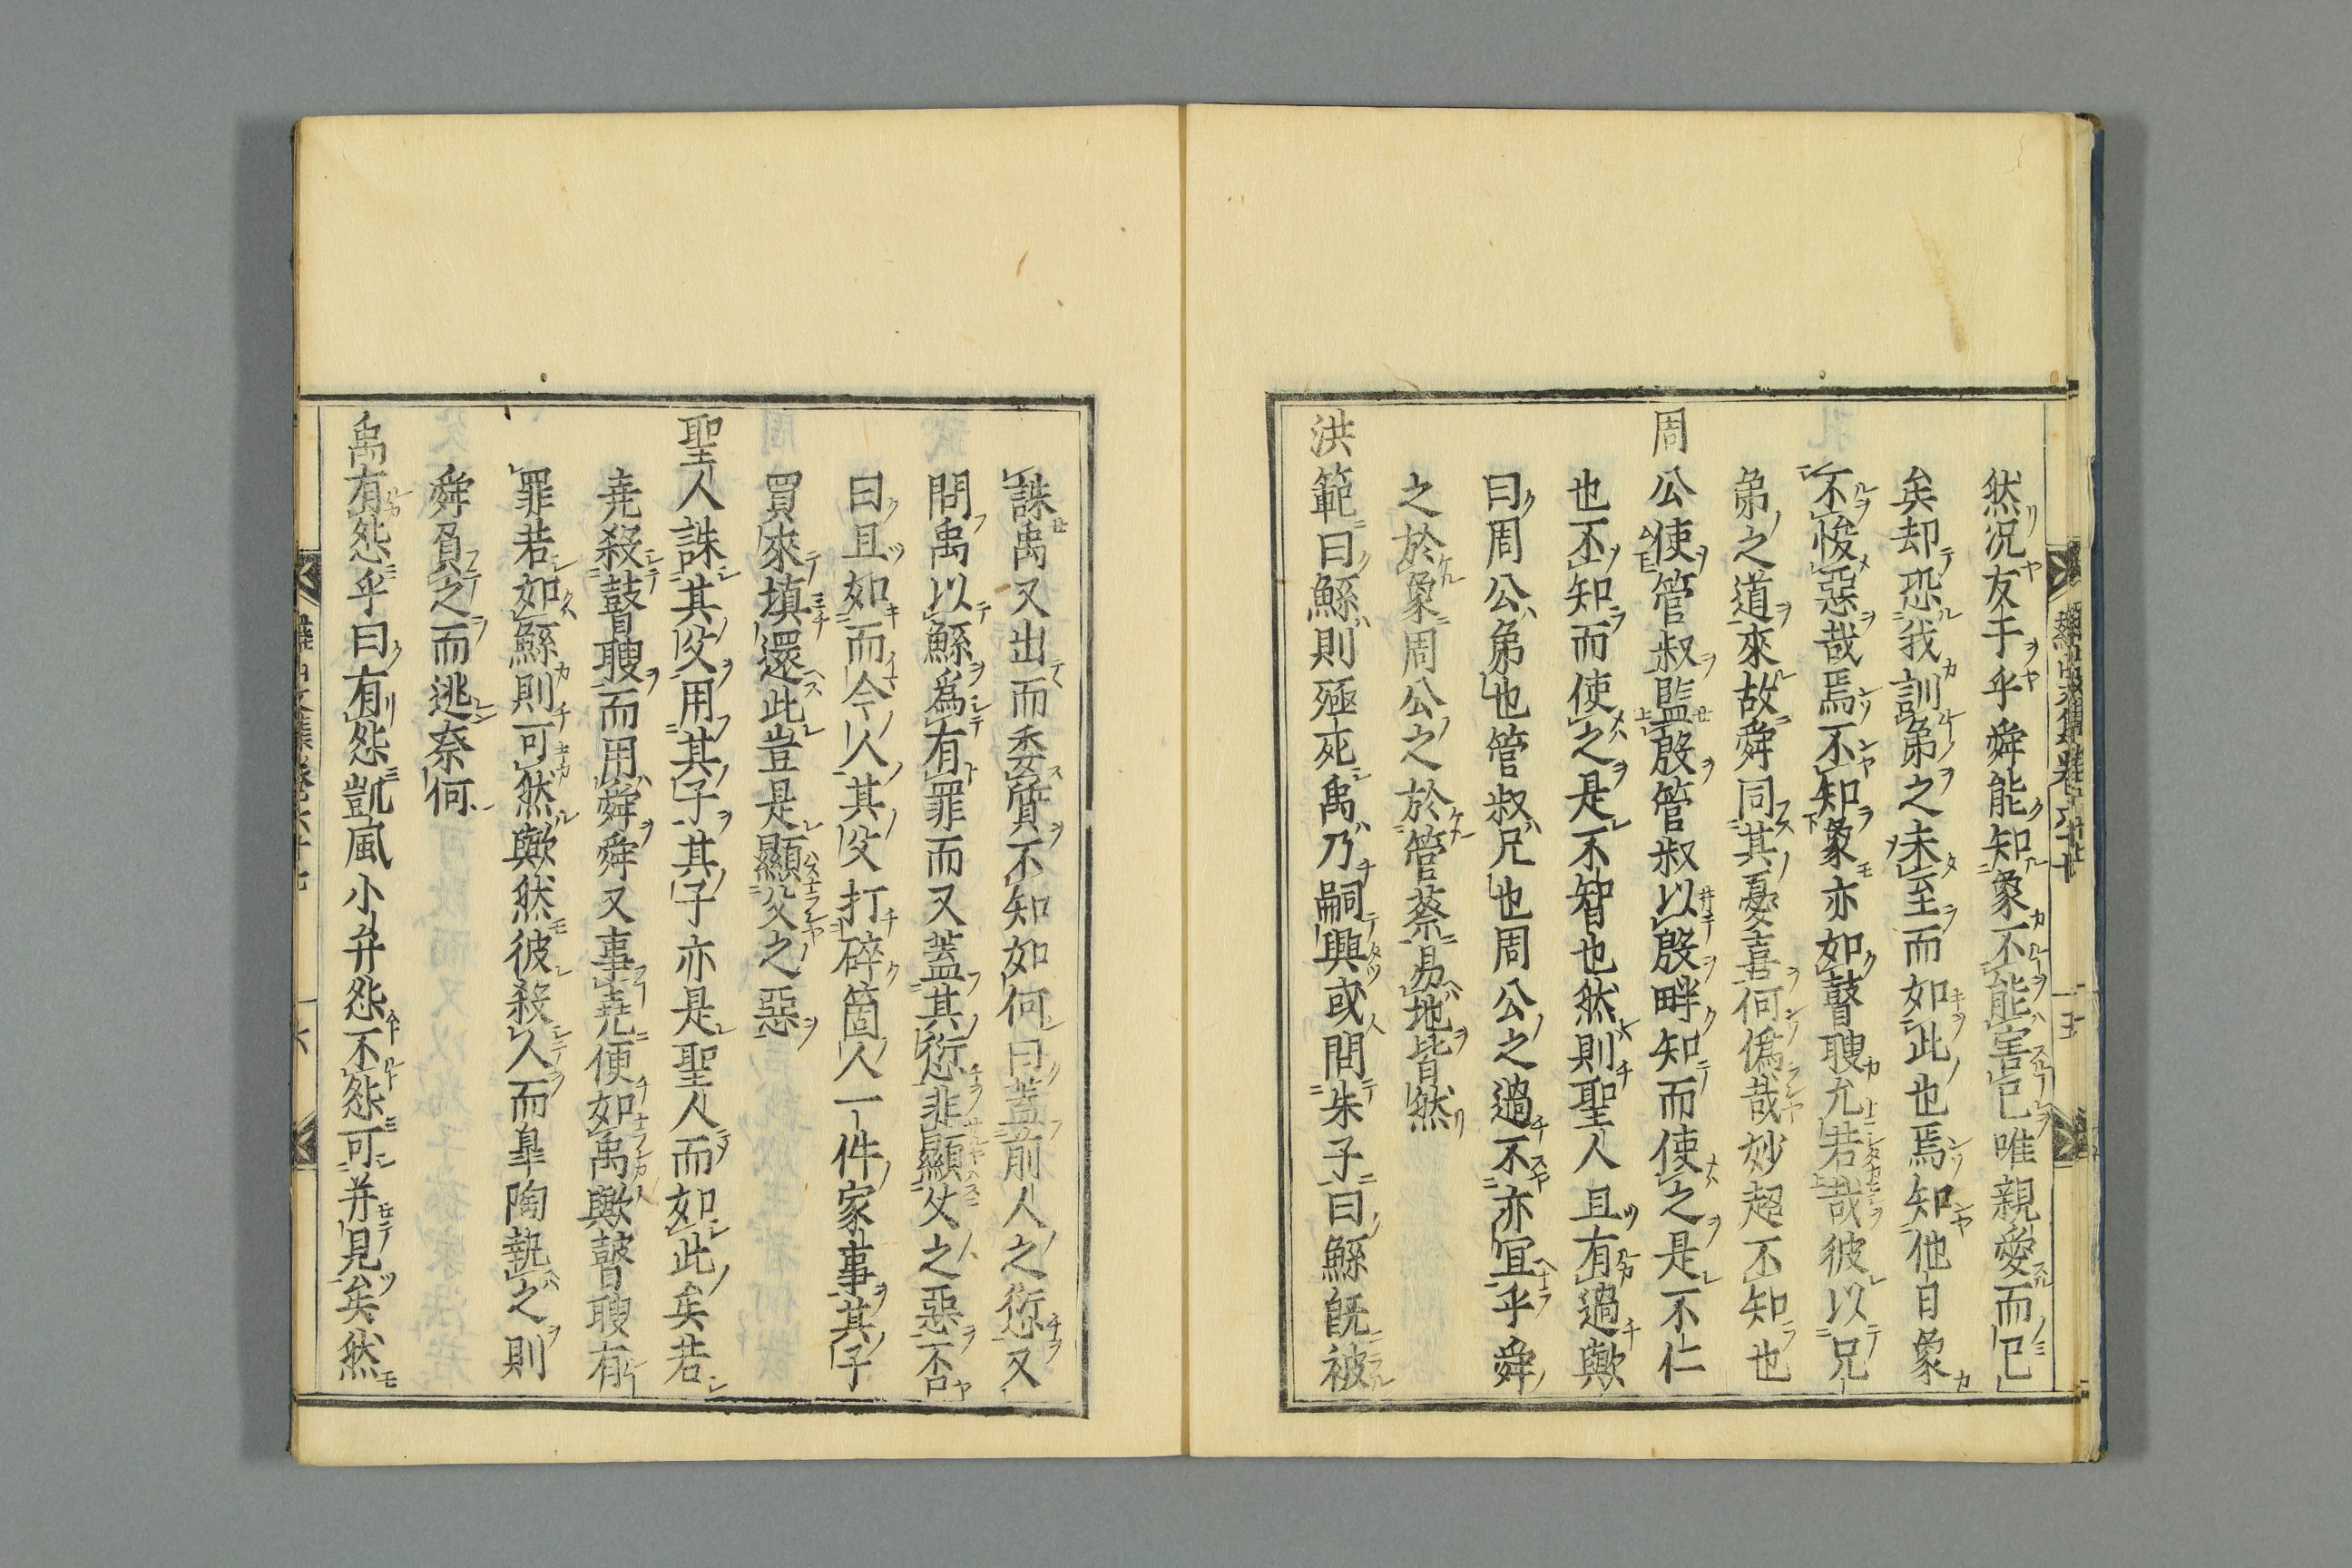 然況友于乎舜能知象不能害已唯親愛而已
矣却恐我訓弟之未至而如此也焉知他日象
不悛惡哉焉不知象亦如瞽瞍允若哉彼以兄
弟之道來故舜同其憂喜何僞哉妙超不知也
周公使管叔監殷管叔以殷畔知而使之是不仁
也不知而使之是不智也然則聖人且有過歟
曰周公弟也管叔兄也周公之過不亦宜乎舜
之於象周公之於管蔡易地皆然
洪範曰鯀則殛死禹乃嗣興或問朱子曰鯀既被
誅禹又出而委質不知如何曰蓋前人之愆又
問禹以鯀爲有罪而又蓋其愆非顯父之惡否
曰且如而今人其父打碎箇人一件家事其子
買來填還此豈是顯父之惡
聖人誅其父用其子其子亦是聖人而如此矣若
堯殺瞽瞍而用舜舜又事堯便如禹歟瞽瞍有
罪若如鯀則可然歟然彼殺人而皐陶執之則
舜負之而逃奈何
禹有怨乎曰有怨凱風小弁怨不怨可并見矣然